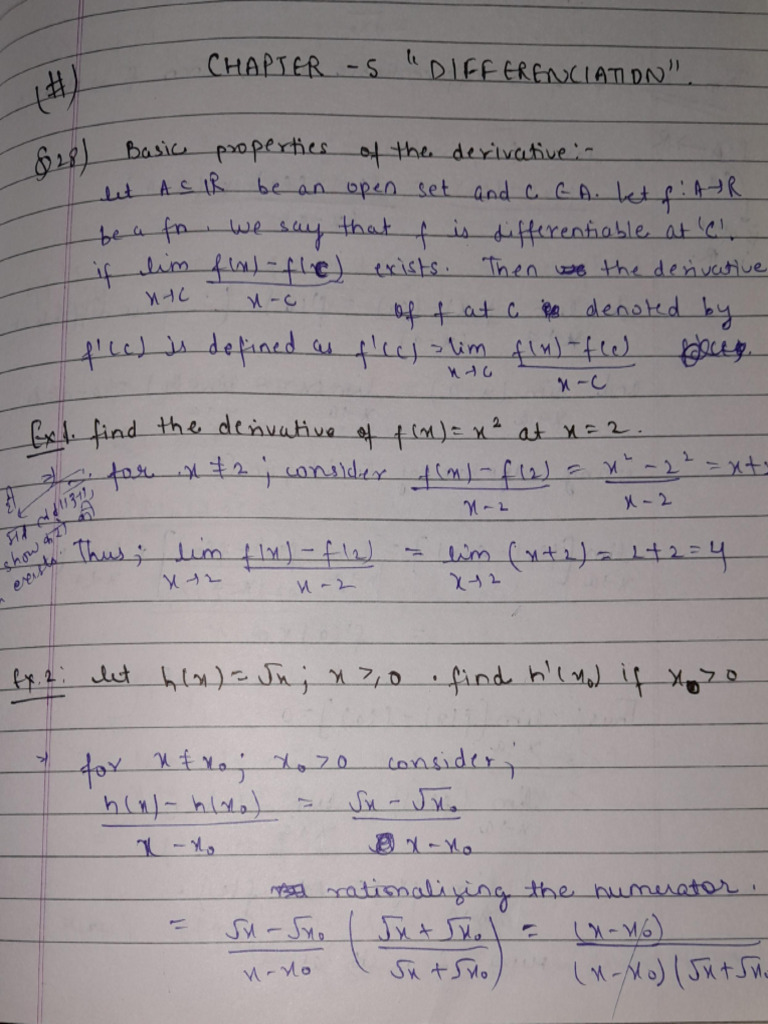 (#) CHAPTER -5 "DIFFERENCIATION".
§28) Basic properties of the derivative:-
let A ⊆ IR be an open set and C ∈ A. let f: A→R
be a fn. We say that f is differentiable at 'C'.
if lim x→c f(x)-f(c) / x-c exists. Then the derivative
of f at c is denoted by
f'(c) is defined as f'(c) = lim x→c f(x)-f(c) / x-c
Ex 1. find the derivative of f(x) = x² at x=2.
⇒ for x ≠ 2; consider f(x)-f(2) / x-2 = x²-2² / x-2 = x+
show
exists.
Thus; lim x→2 f(x)-f(2) / x-2 = lim x→2 (x+2) = 2+2 = 4
Ex.2: let h(x) = √x; x ≥ 0. find h'(x₀) if x₀ > 0
→ for x ≠ x₀; x₀ > 0 consider;
h(x)-h(x₀) / x-x₀ = √x-√x₀ / x-x₀
rationalizing the numerator.
= √x-√x₀ / x-x₀ (√x+√x₀ / √x+√x₀) = (x-x₀) / (x-x₀)(√x+√x₀